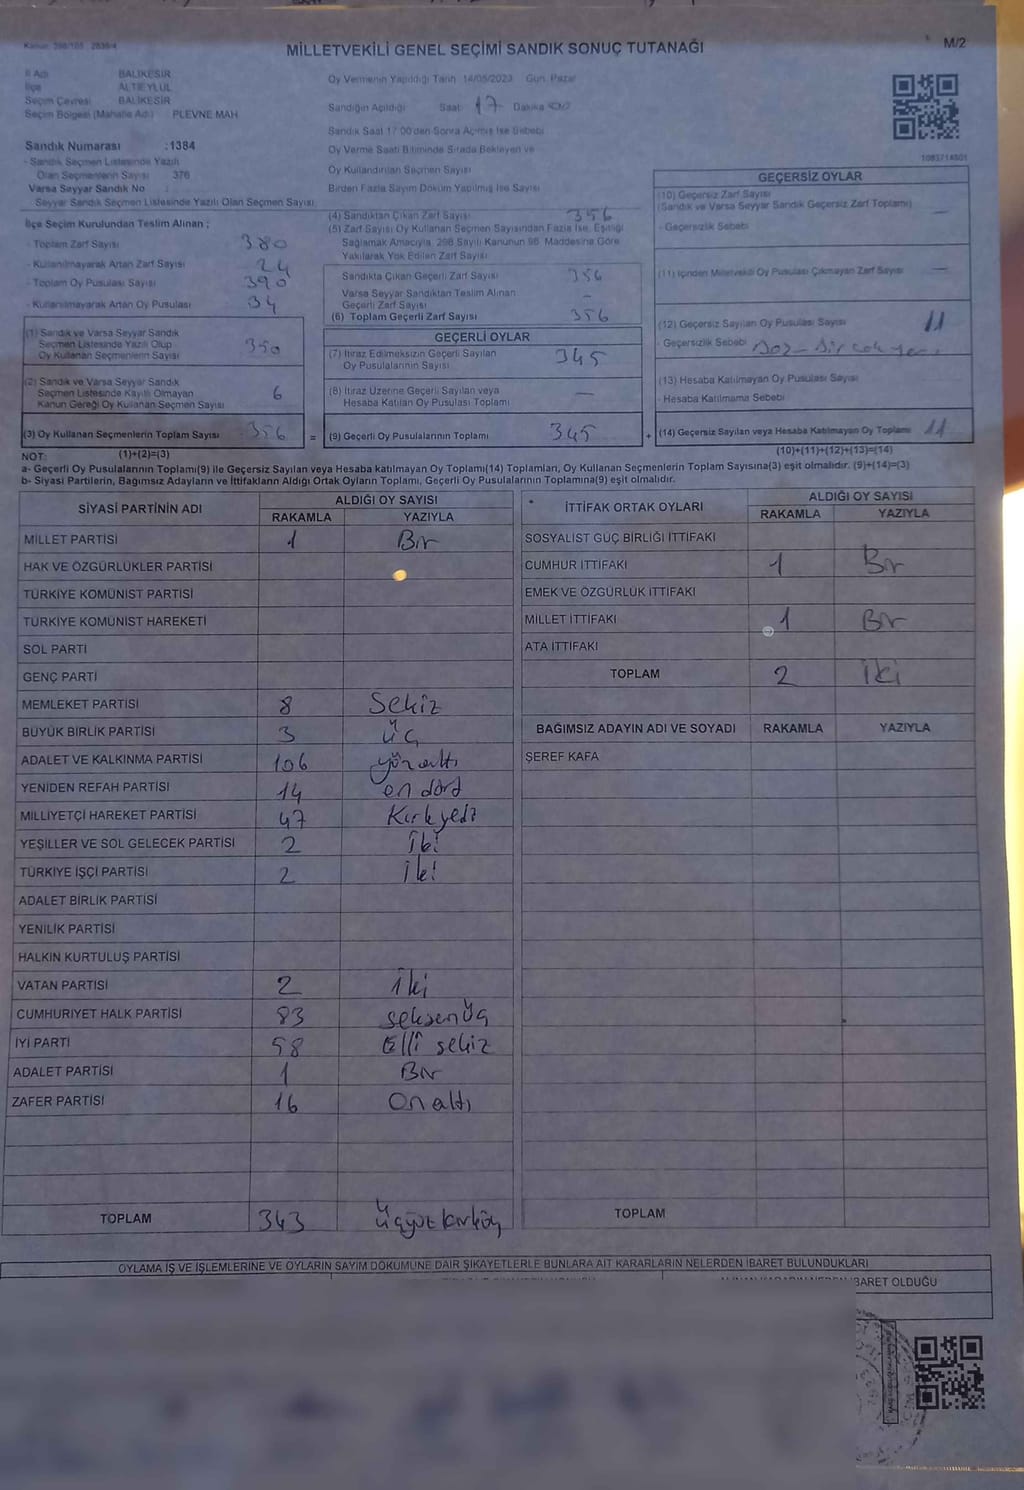 Kanun: 298/105 2839/4
MİLLETVEKİLİ GENEL SEÇİMİ SANDIK SONUÇ TUTANAĞI
M/2
İl Adı BALIKESİR
İlçe ALTIEYLÜL
Seçim Çevresi BALIKESİR
Seçim Bölgesi (Mahalle Adı) PLEVNE MAH
Sandık Numarası :1384
- Sandık Seçmen Listesinde Yazılı
Olan Seçmenlerin Sayısı 376
Varsa Seyyar Sandık No :
- Seyyar Sandık Seçmen Listesinde Yazılı Olan Seçmen Sayısı
İlçe Seçim Kurulundan Teslim Alınan ;
- Toplam Zarf Sayısı 380
- Kullanılmayarak Artan Zarf Sayısı 24
- Toplam Oy Pusulası Sayısı 390
- Kullanılmayarak Artan Oy Pusulası 34
(1) Sandık ve Varsa Seyyar Sandık
Seçmen Listesinde Yazılı Olup
Oy Kullanan Seçmenlerin Sayısı 350
(2) Sandık ve Varsa Seyyar Sandık
Seçmen Listesinde Kayıtlı Olmayan
Kanun Gereği Oy Kullanan Seçmen Sayısı 6
(3) Oy Kullanan Seçmenlerin Toplam Sayısı 356
Oy Vermenin Yapıldığı Tarih 14/05/2023 Gün Pazar
Sandığın Açıldığı Saat 17 Dakika
Sandık Saat 17 00'den Sonra Açılmış İse Sebebi
Oy Verme Saati Bitiminde Sırada Bekleyen ve
Oy Kullandırılan Seçmen Sayısı
Birden Fazla Sayım Döküm Yapılmış İse Sayısı
(4) Sandıktan Çıkan Zarf Sayısı 356
(5) Zarf Sayısı Oy Kullanan Seçmen Sayısından Fazla İse, Eşitliği
Sağlamak Amacıyla, 298 Sayılı Kanunun 98. Maddesine Göre
Yakılarak Yok Edilen Zarf Sayısı
Sandıkta Çıkan Geçerli Zarf Sayısı 356
Varsa Seyyar Sandıktan Teslim Alınan
Geçerli Zarf Sayısı -
(6) Toplam Geçerli Zarf Sayısı 356
GEÇERLİ OYLAR
(7) İtiraz Edilmeksizin Geçerli Sayılan
Oy Pusulalarının Sayısı 345
(8) İtiraz Üzerine Geçerli Sayılan veya
Hesaba Katılan Oy Pusulası Toplamı —
= (9) Geçerli Oy Pusulalarının Toplamı 345
1083714801
GEÇERSİZ OYLAR
(10) Geçersiz Zarf Sayısı
(Sandık ve Varsa Seyyar Sandık Geçersiz Zarf Toplamı) —
- Geçersizlik Sebebi
(11) İçinden Milletvekili Oy Pusulası Çıkmayan Zarf Sayısı —
(12) Geçersiz Sayılan Oy Pusulası Sayısı 11
- Geçersizlik Sebebi
(13) Hesaba Katılmayan Oy Pusulası Sayısı
- Hesaba Katılmama Sebebi
+ (14) Geçersiz Sayılan veya Hesaba Katılmayan Oy Toplamı 11
NOT: (1)+(2)=(3) (10)+(11)+(12)+(13)=(14)
a- Geçerli Oy Pusulalarının Toplamı(9) ile Geçersiz Sayılan veya Hesaba katılmayan Oy Toplamı(14) Toplamları, Oy Kullanan Seçmenlerin Toplam Sayısına(3) eşit olmalıdır. (9)+(14)=(3)
b- Siyasi Partilerin, Bağımsız Adayların ve İttifakların Aldığı Ortak Oyların Toplamı, Geçerli Oy Pusulalarının Toplamına(9) eşit olmalıdır.
SİYASİ PARTİNİN ADI ALDIĞI OY SAYISI
RAKAMLA YAZIYLA
MİLLET PARTİSİ 1 Bir
HAK VE ÖZGÜRLÜKLER PARTİSİ
TÜRKİYE KOMÜNİST PARTİSİ
TÜRKİYE KOMÜNİST HAREKETİ
SOL PARTİ
GENÇ PARTİ
MEMLEKET PARTİSİ 8 Sekiz
BÜYÜK BİRLİK PARTİSİ 3 üç
ADALET VE KALKINMA PARTİSİ 106 yüz altı
YENİDEN REFAH PARTİSİ 14 on dört
MİLLİYETÇİ HAREKET PARTİSİ 47 Kırkyedi
YEŞİLLER VE SOL GELECEK PARTİSİ 2 İki
TÜRKİYE İŞÇİ PARTİSİ 2 İki
ADALET BİRLİK PARTİSİ
YENİLİK PARTİSİ
HALKIN KURTULUŞ PARTİSİ
VATAN PARTİSİ 2 İki
CUMHURİYET HALK PARTİSİ 83 seksenüç
İYİ PARTİ 58 Elli sekiz
ADALET PARTİSİ 1 Bir
ZAFER PARTİSİ 16 Onaltı
TOPLAM 343 Üçyüzkırküç
İTTİFAK ORTAK OYLARI ALDIĞI OY SAYISI
RAKAMLA YAZIYLA
SOSYALİST GÜÇ BİRLİĞİ İTTİFAKI
CUMHUR İTTİFAKI 1 Bir
EMEK VE ÖZGÜRLÜK İTTİFAKI
MİLLET İTTİFAKI 1 Bir
ATA İTTİFAKI
TOPLAM 2 İki
BAĞIMSIZ ADAYIN ADI VE SOYADI RAKAMLA YAZIYLA
ŞEREF KAFA
TOPLAM
OYLAMA İŞ VE İŞLEMLERİNE VE OYLARIN SAYIM DÖKÜMÜNE DAİR ŞİKAYETLERLE BUNLARA AİT KARARLARIN NELERDEN İBARET BULUNDUKLARI
İBARET OLDUĞU